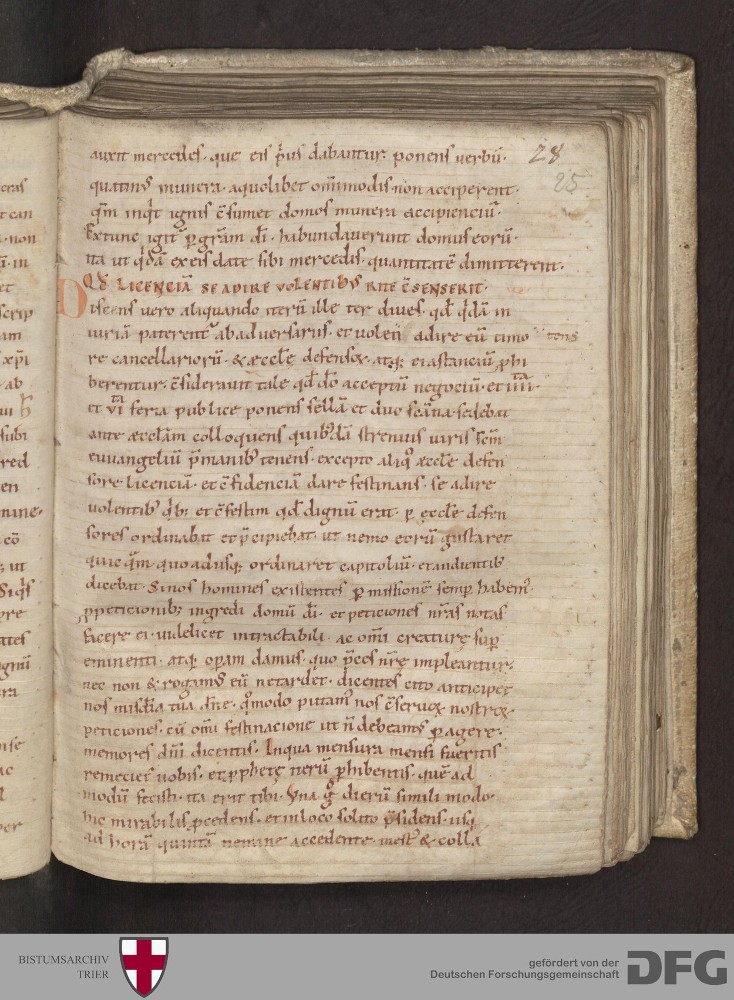 auxit mercedes· que eis p̃us dabantur· ponens uerbũ·
28
quatinꝰ munera· aquolibet om̃modis· non acciperent·
25
qm̃ inq̃t ignis c̃sumet domos munera accipienciũ·
Extunc igit̃ ꝑgrãm dĩ· habundauerunt domus eorũ·
ita ut q̃dã exeis date sibi mercedis· quantitatẽ dimitterent·
QD̃ LICENCIÃ SEADIRE VOLENTIBVS RITE C̃SENSERIT·
Discens uero aliquando iterũ ille ter diues· qd̃ q̃dã in
iuriã paterent̃ abaduersariis· et uolen adire eũ timo tens
re cancellariorũ· & æccl̃ę defensoꝝ· atqꝫ ei astanciũ ꝓhi
berentur· c̃siderauit tale qd̃ dõ acceptũ negociũ· et IIII·
et VI feria publice ponens sellã et duo scãna· sedebat
ante æccl̃am colloquens quibꝰdã strenuis uiris· sc̃m
euuangeliũ p̃manibꝰ tenens· excepto aliq̊ æccl̃e defen
sore licenciã· et c̃fidenciã dare festinans· se adire
uolentibꝰ q̃bꝫ et c̃festim qd̃ dignũ erat· ꝑ eccl̃e defen
sores ordinabat et p̃cipiebat· ut nemo eorũ gustaret
quicq̃m quoadusqꝫ ordinaret capitoliũ· et audientibꝰ
dicebat· Sinos homines existentes ꝑmissionẽ semꝑ habemꝰ·
ꝓpeticionibꝫ ingredi domũ dĩ· et peticiones nr̃as notas
facere ei· uidelicet intractabili· ac om̃i creature suꝑ
eminenti· atqꝫ oꝑam damus· quo p̃ces nr̃e impleantur·
nec non & rogamꝰ eũ ne tardet· dicentes cito anticipet
nos mis̃dia tua dñe· q̊modo putamꝰ nos c̃seruoꝝ nostroꝝ·
peticiones· cũ om̃i festinacione ut ñ debeamꝰ ꝑagere·
memores dñi dicentis· Inqua mensura mensi fueritis
remeciet̃ uobis· et ꝓphetę uerũ ꝓhibentis· quẽad
modũ fecisti· ita erit tibi· Vna g̊ dierũ simili modo
hic mirabilis ꝓcedens· et inloco solito p̃sidens· usqꝫ
ad horã quintã nemine accedente· mestꝰ & colla
BISTUMSARCHIV
TRIER
gefördert von der
Deutschen Forschungsgemeinschaft
DFG